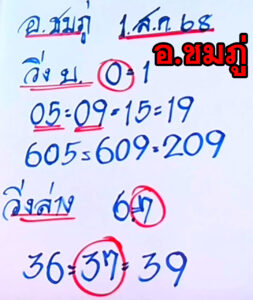 อ.ชมภู่ 1.ส.ค 68
อ.ขมภู่
วิ่ง บ. 0=1
05=09=15=19
605=609=209
วิ่งล่าง 6=7
36=37=39